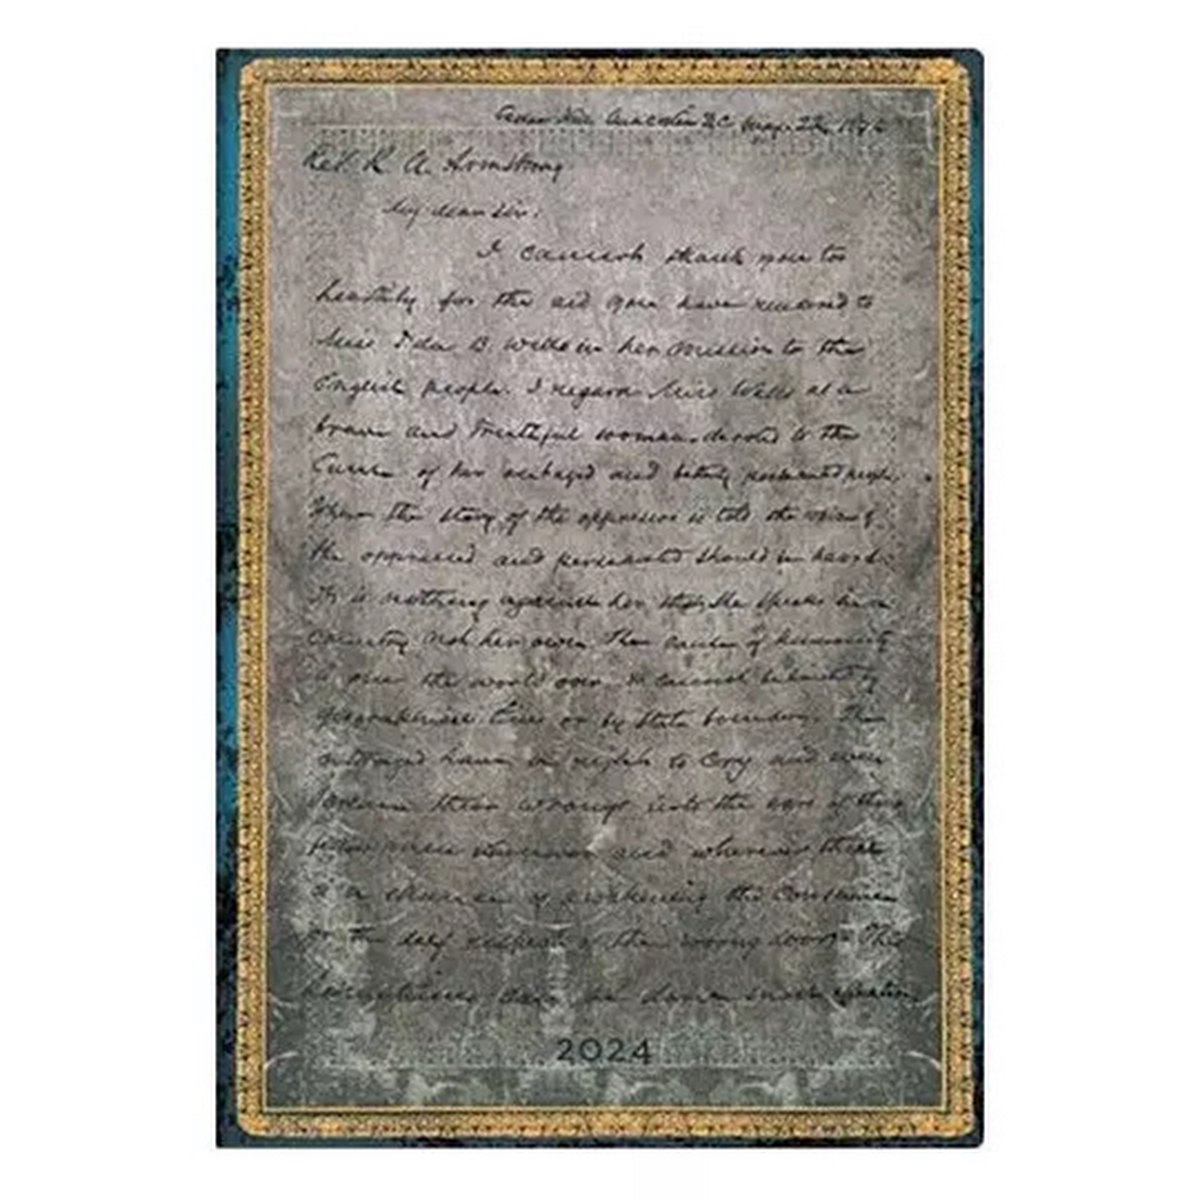 Cedar Hill Anacostia D.C. May 22, 1894
Rev. R. A. Armstrong
My dear Sir:
I cannot thank you too
heartily for the aid you have rendered to
Miss Ida B. Wells in her mission to the
English people. I regard Miss Wells as a
brave and truthful woman, devoted to the
Cause of her outraged and persecuted people.
When the story of the oppressor is told the voice of
the oppressed and persecuted should be heard.
It is nothing against her that she speaks in a
country not her own. The cause of humanity
is one the world over. It cannot be limited by
geographical lines or by State boundary. The
outraged have a right to cry and even
scream their wrongs into the ears of their
fellow men whenever and wherever there
is a chance of awakening the Conscience
or the self respect of the wrong doers. The
can
2024